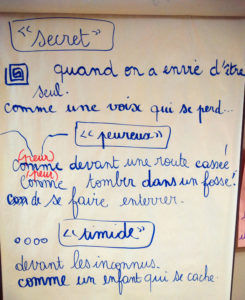 « secret »
quand on a envie d'être
seul.
comme une voix qui se perd...
« peureux »
(peur)
comme devant une route cassée
(peur)
comme tomber dans un fossé!
de se faire enterrer.
« timide »
devant les inconnus.
comme un enfant qui se cache.